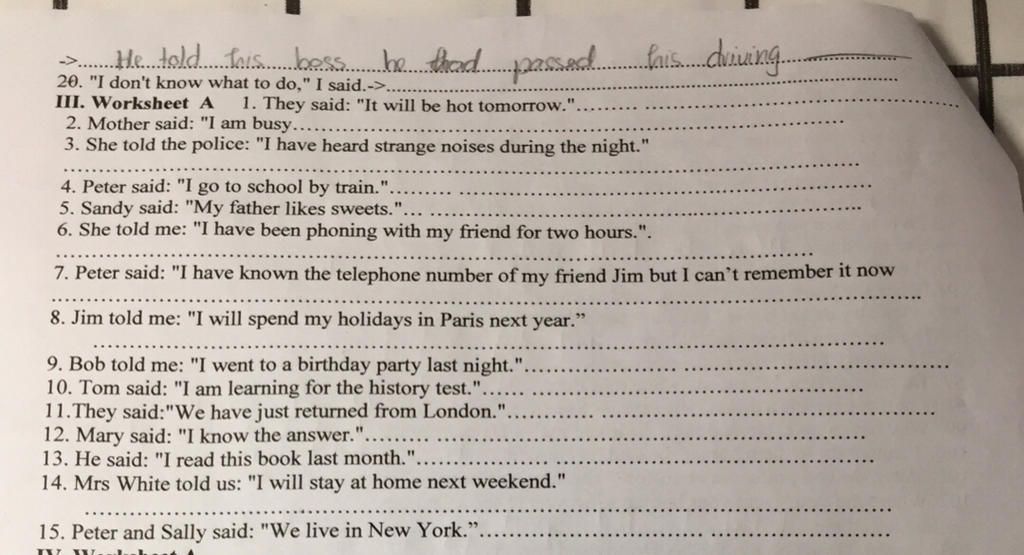 ->.....He told his boss he had passed his driving..........
20. "I don't know what to do," I said.->..........
III. Worksheet A 1. They said: "It will be hot tomorrow."..........
2. Mother said: "I am busy..........
3. She told the police: "I have heard strange noises during the night."
..........
4. Peter said: "I go to school by train."..........
5. Sandy said: "My father likes sweets."..........
6. She told me: "I have been phoning with my friend for two hours.".
..........
7. Peter said: "I have known the telephone number of my friend Jim but I can't remember it now
..........
8. Jim told me: "I will spend my holidays in Paris next year.”
..........
9. Bob told me: "I went to a birthday party last night."..........
10. Tom said: "I am learning for the history test."..........
11.They said:"We have just returned from London."..........
12. Mary said: "I know the answer."..........
13. He said: "I read this book last month."..........
14. Mrs White told us: "I will stay at home next weekend."
..........
15. Peter and Sally said: "We live in New York.”..........